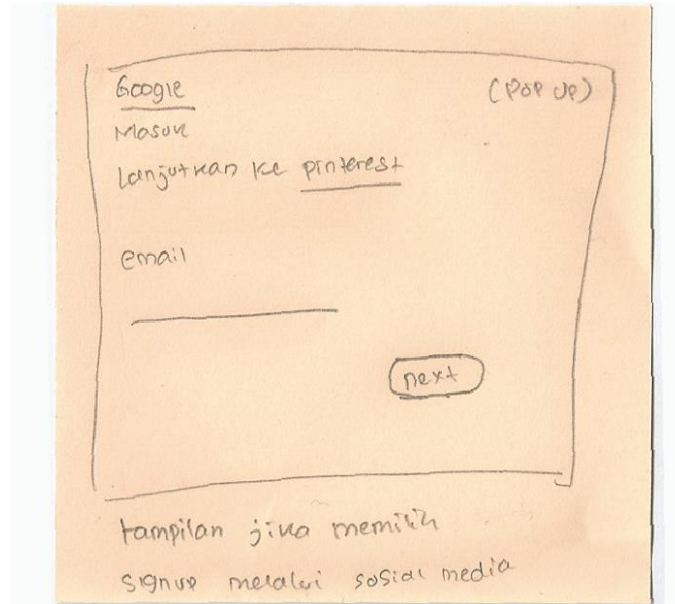 Google (POP UP)
Masuk
Lanjutkan ke pinterest
email
next
tampilan jika memilih
signup melalui sosial media